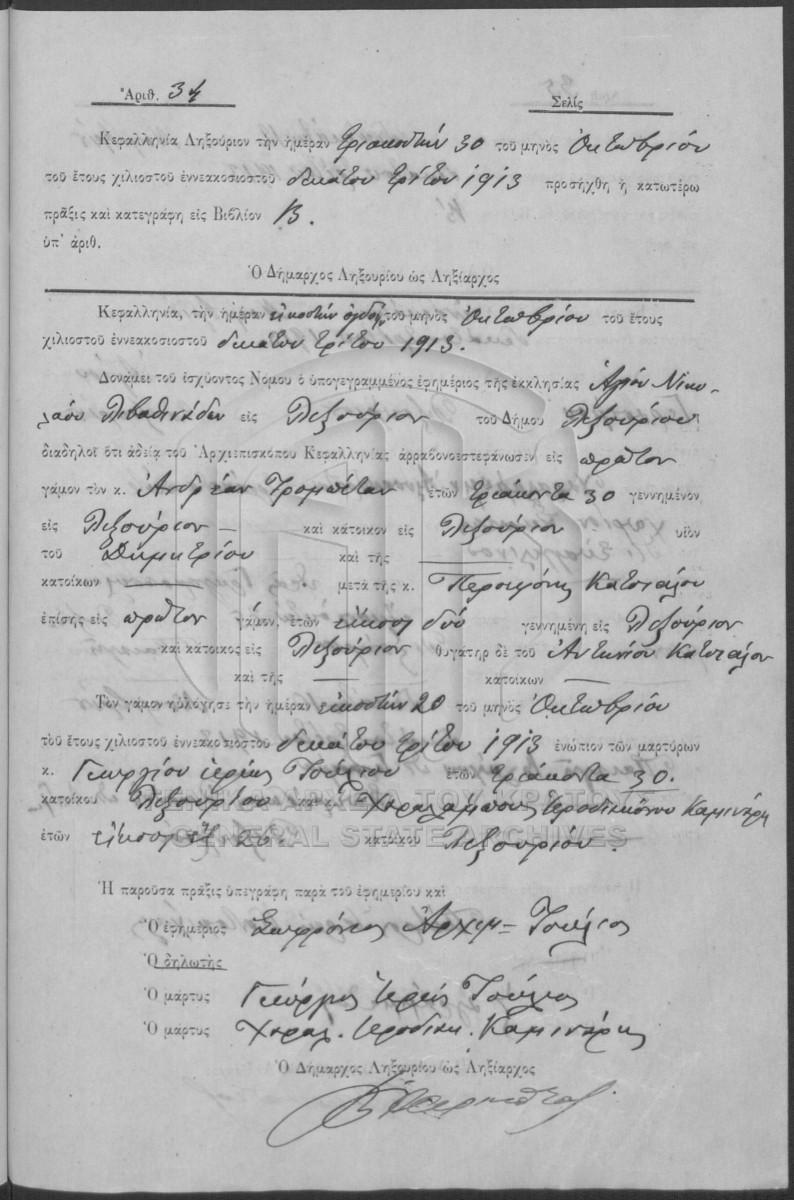 Ἀριθ. 34 Σελὶς
Κεφαλληνία Ληξούριον τὴν ἡμέραν τριακοστὴν 30 τοῦ μηνὸς Ὀκτωβρίου
τοῦ ἔτους χιλιοστοῦ ἐννεακοσιοστοῦ δεκάτου τρίτου 1913 προσήχθη ἡ κατωτέρω
πρᾶξις καὶ κατεγράφη εἰς Βιβλίον Β.
ὑπ' ἀριθ.
Ὁ Δήμαρχος Ληξουρίου ὡς Ληξίαρχος
Κεφαλληνία, τὴν ἡμέραν εἰκοστὴν τοῦ μηνὸς Ὀκτωβρίου τοῦ ἔτους
χιλιοστοῦ ἐννεακοσιοστοῦ δεκάτου τρίτου 1913.
Δυνάμει τοῦ ἰσχύοντος Νόμου ὁ ὑπογεγραμμένος ἐφημέριος τῆς ἐκκλησίας Ἁγίου Νικο-
λάου εἰς Ληξούριον τοῦ Δήμου Ληξουρίου
διαδηλοῖ ὅτι ἀδείᾳ τοῦ Ἀρχιεπισκόπου Κεφαλληνίας ἀρραβονοεστεφάνωσεν εἰς πρῶτον
γάμον τὸν κ. Ἀνδρέαν Τρομπέταν ἐτῶν τριάκοντα 30 γεννημένον
εἰς Ληξούριον — καὶ κάτοικον εἰς Ληξούριον υἱὸν
τοῦ Δημητρίου καὶ τῆς —
κατοίκων — μετὰ τῆς κ. Περσεφόνης
ἐπίσης εἰς πρῶτον γάμον, ἐτῶν εἴκοσι δύο γεννημένη εἰς Ληξούριον
καὶ κάτοικος εἰς Ληξούριον θυγάτηρ δὲ τοῦ Ἀντωνίου
καὶ τῆς — κατοίκων —
Τὸν γάμον ηὐλόγησε τὴν ἡμέραν εἰκοστὴν 20 τοῦ μηνὸς Ὀκτωβρίου
τοῦ ἔτους χιλιοστοῦ ἐννεακοσιοστοῦ δεκάτου τρίτου 1913 ἐνώπιον τῶν μαρτύρων
κ. Γεωργίου ἱερέως Τσούλιου ἐτῶν τριάκοντα 30.
κατοίκου Ληξουρίου καὶ κ. Χαραλάμπους Ἱεροδιακόνου Καμινάρη
ΓΕΝΙΚΑ ΑΡΧΕΙΑ ΤΟΥ ΚΡΑΤΟΥΣ
ἐτῶν εἴκοσι ἕξ 26. κατοίκου Ληξουρίου.
GENERAL STATE ARCHIVES
Ἡ παροῦσα πρᾶξις ὑπεγράφη παρὰ τοῦ ἐφημερίου καὶ
Ὁ ἐφημέριος Σωφρόνιος Ἀρχιμ= Τσούλιος
Ὁ δηλωτὴς
Ὁ μάρτυς Γεώργιος ἱερεύς Τσούλιος
Ὁ μάρτυς Χαραλ. Ἱεροδιακ. Καμινάρης
Ὁ Δήμαρχος Ληξουρίου ὡς Ληξίαρχος